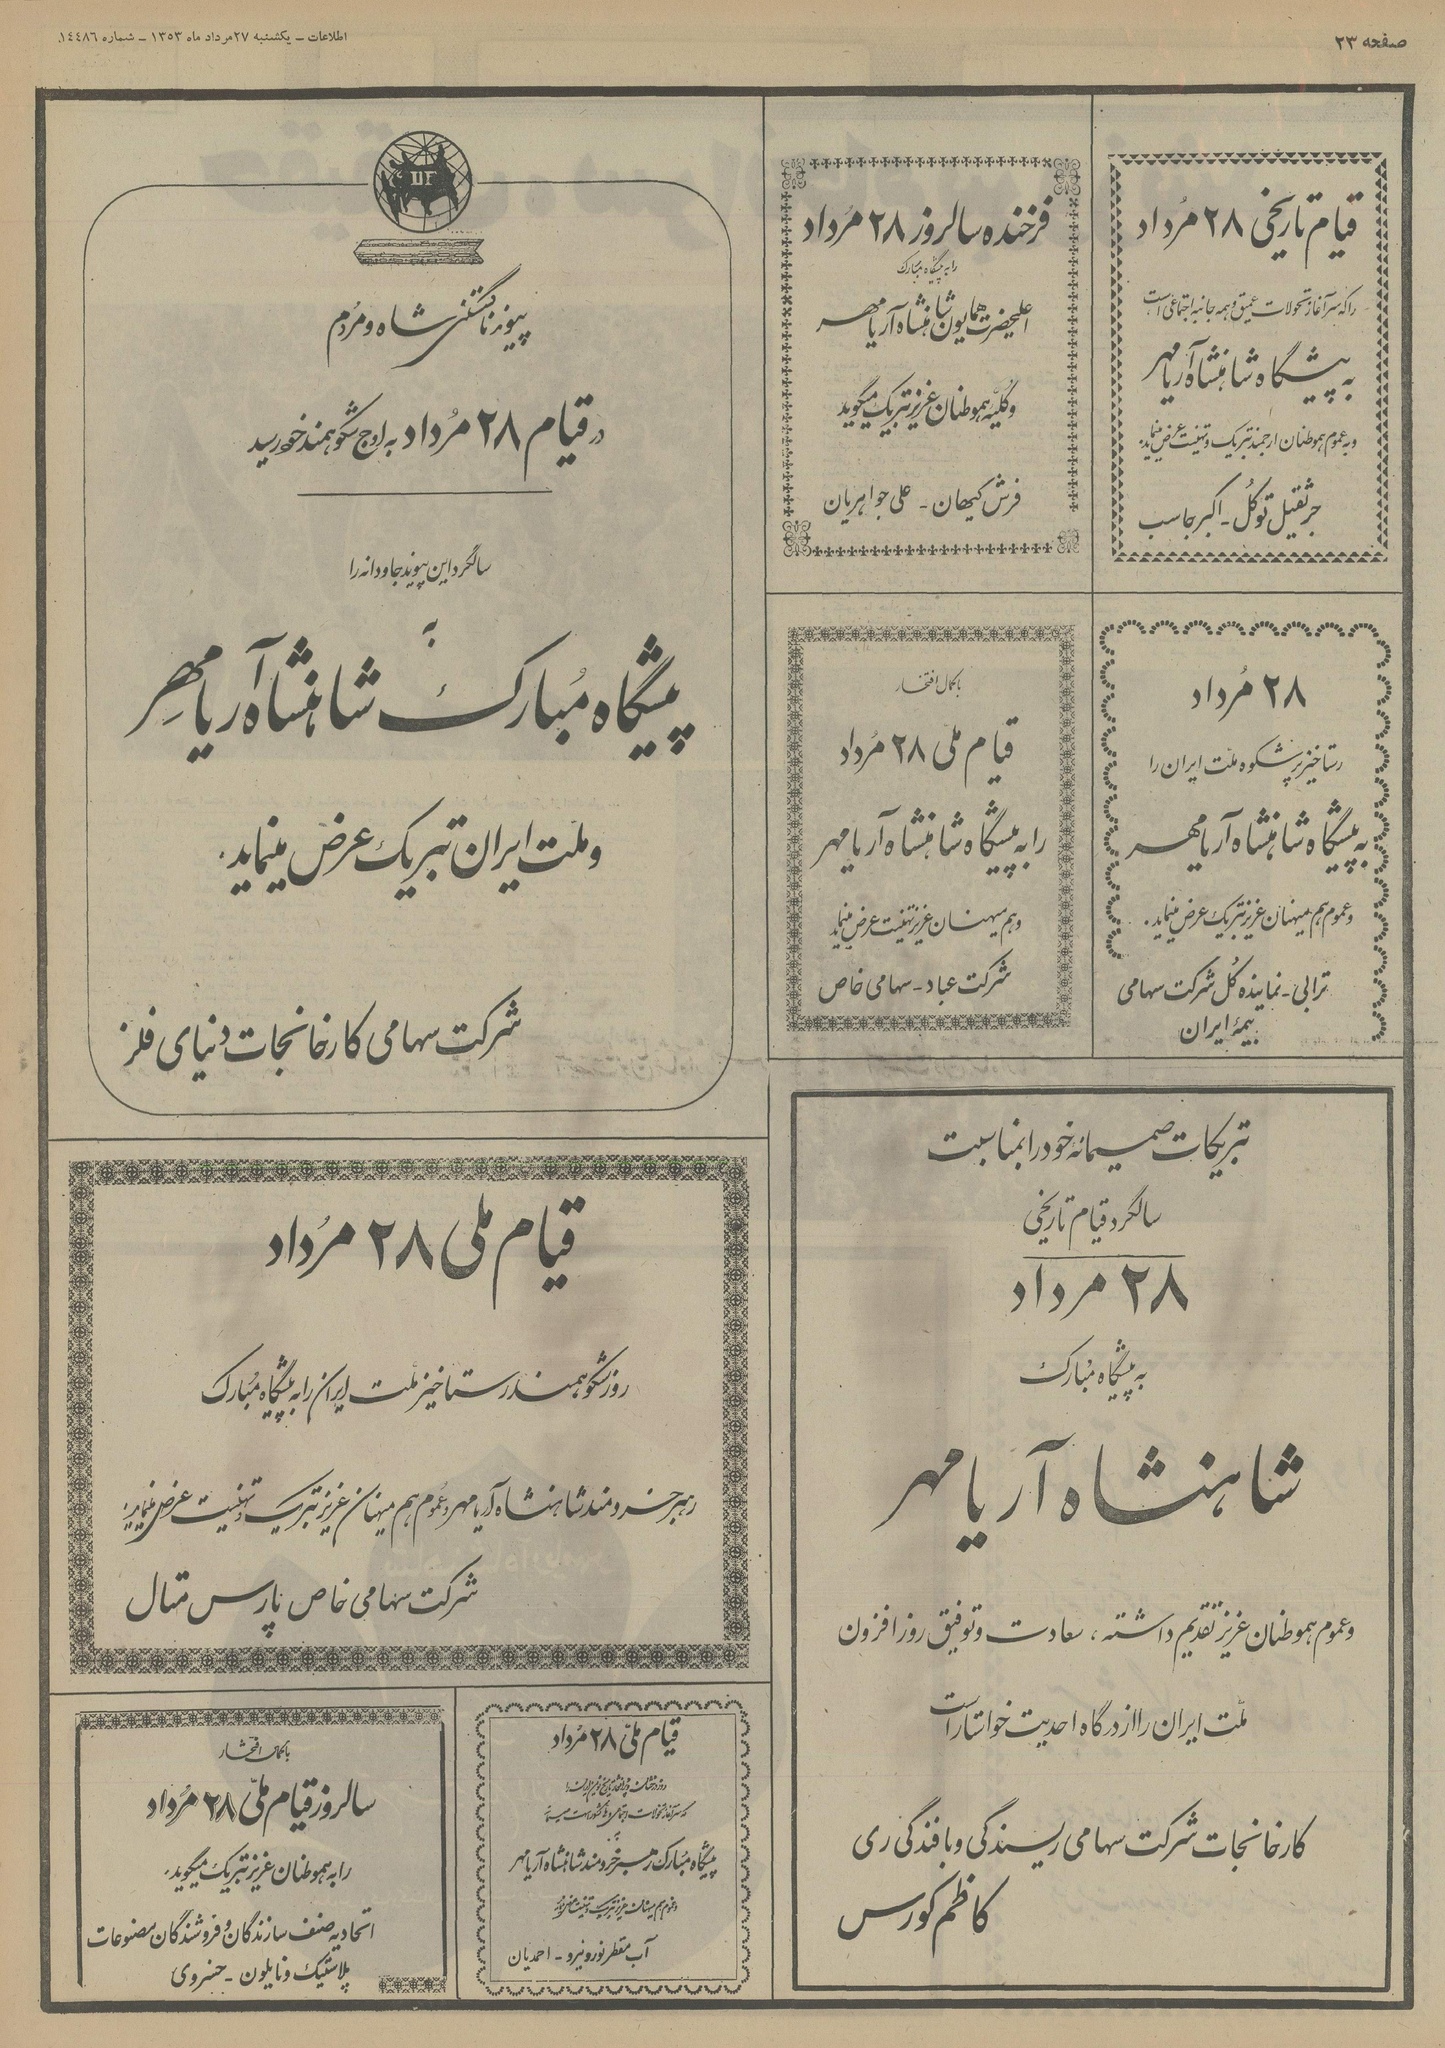 صفحه ۲۳
اطلاعات ــ یکشنبه ۲۷ مرداد ماه ۱۳۵۳ ــ شماره ۱٤٤٨٦
قیام تاریخی ۲۸ مُرداد
را که سرآغاز تحولات عمیق و همه جانبه اجتماعی است
به پیشگاه شاهنشاه آریامهر
و به عموم هموطنان ارجمند تبریک و تهنیت عرض مینماید.
جرثقیل توکل ـ اکبر جاسب
فرخنده سالروز ۲۸ مُرداد
را به پیشگاه مبارک
اعلیحضرت همایون شاهنشاه آریامهر
و کلیه هموطنان عزیز تبریک میگوید
فرش کیهان ـ علی جواهریان
UF
پیوند ناگسستنی شاه و مردم
در قیام ۲۸ مُرداد به اوج شکوهمند خود رسید
سالگرد این پیوند جاودانه را
به
پیشگاه مُبارک شاهنشاه آریامهر
و ملت ایران تبریک عرض مینماید.
شرکت سهامی کارخانجات دنیای فلز
۲۸ مُرداد
رستاخیز پرشکوه ملت ایران را
به پیشگاه شاهنشاه آریامهر
و عموم هم میهنان عزیز تبریک عرض مینماید.
ترابی ـ نماینده کل شرکت سهامی
بیمهٔ ایران
با کمال افتخار
قیام ملی ۲۸ مُرداد
را به پیشگاه شاهنشاه آریامهر
و هم میهنان عزیز تهنیت عرض مینماید
شرکت عباد ـ سهامی خاص
تبریکات صمیمانهٔ خود را بمناسبت
سالگرد قیام تاریخی
۲۸ مرداد
به پیشگاه مُبارک
شاهنشاه آریامهر
و عموم هموطنان عزیز تقدیم داشته، سعادت و توفیق روزافزون
ملت ایران را از درگاه احدیت خواستار است
کارخانجات شرکت سهامی ریسندگی و بافندگی ری
کاظم کورس
قیام ملی ۲۸ مُرداد
روز شکوهمند رستاخیز ملت ایران را به پیشگاه مُبارک
رهبر خردمند شاهنشاه آریامهر و عموم هم میهنان عزیز تبریک و تهنیت عرض مینماید.
شرکت سهامی خاص پارس متال
قیام ملی ۲۸ مُرداد
که سرآغاز تحولات
پیشگاه مُبارک رهبر خردمند شاهنشاه آریامهر
و عموم هم میهنان عزیز تبریک و تهنیت
آب مقطر نورونیرو ـ احمدیان
با کمال افتخار
سالروز قیام ملی ۲۸ مُرداد
را به هموطنان عزیز تبریک میگوید.
اتحادیه صنف سازندگان و فروشندگان مصنوعات
پلاستیک و نایلون ـ خسروی